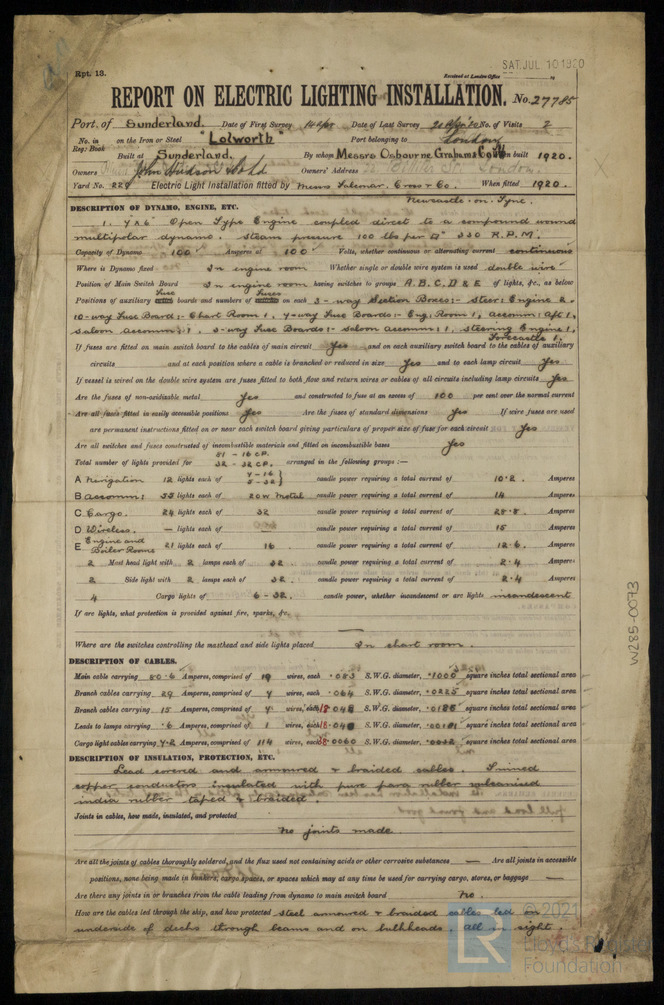 Rpt. 13.
SAT. JUL. 10 1920
Received at London Office
REPORT ON ELECTRIC LIGHTING INSTALLATION. No. 27785
Port of Sunderland Date of First Survey Date of Last Survey No. of Visits 2
No. in Reg. Book on the Iron or Steel "Lolworth" Port belonging to London
Built at Sunderland. By whom Messrs Osbourne Graham & Co When built 1920.
Owners John Hudson Owners' Address London.
Yard No. 229 Electric Light Installation fitted by Messrs Falconar, Cross & Co. When fitted 1920.
Newcastle-on-Tyne.
DESCRIPTION OF DYNAMO, ENGINE, ETC.
1. 7 x 6" Open Type Engine coupled direct to a compound wound
multipolar dynamo. Steam pressure 100 lbs per □" 330 R.P.M.
Capacity of Dynamo 100 Amperes at 100 Volts, whether continuous or alternating current continuous
Where is Dynamo fixed In engine room Whether single or double wire system is used double wire
Position of Main Switch Board In engine room having switches to groups A. B. C. D & E of lights, &c., as below
Positions of auxiliary Fuse boards and numbers of Fuses on each 3-way Section Boxes:- Steer: Engine 2.
10-way Fuse Board:- Chart Room 1, 4-way Fuse Boards:- Eng: Room 1, Accomm: Aft 1,
Saloon Accomm: 1. 3-way Fuse Boards:- Saloon Accomm: 1, Steering Engine 1,
Forecastle 1.
If fuses are fitted on main switch board to the cables of main circuit Yes and on each auxiliary switch board to the cables of auxiliary
circuits and at each position where a cable is branched or reduced in size Yes and to each lamp circuit Yes
If vessel is wired on the double wire system are fuses fitted to both flow and return wires or cables of all circuits including lamp circuits Yes
Are the fuses of non-oxidizable metal Yes and constructed to fuse at an excess of 100 per cent over the normal current
Are all fuses fitted in easily accessible positions Yes Are the fuses of standard dimensions Yes If wire fuses are used
are permanent instructions fitted on or near each switch board giving particulars of proper size of fuse for each circuit Yes
Are all switches and fuses constructed of incombustible materials and fitted on incombustible bases Yes
81 - 16 CP.
Total number of lights provided for 32 - 32 CP. arranged in the following groups :—
A Navigation 12 lights each of 7-16 } 5-32 } candle power requiring a total current of 10.2 Amperes
B Accomm: 55 lights each of 20w Metal candle power requiring a total current of 14 Amperes
C Cargo. 24 lights each of 32 candle power requiring a total current of 28.8 Amperes
D Wireless. — lights each of candle power requiring a total current of 15 Amperes
E Engine and Boiler Rooms 21 lights each of 16 candle power requiring a total current of 12.6 Amperes
2 Mast head light with 2 lamps each of 32 candle power requiring a total current of 2.4 Amperes
2 Side light with 2 lamps each of 32 candle power requiring a total current of 2.4 Amperes
4 Cargo lights of 6 - 32. candle power, whether incandescent or arc lights incandescent
If arc lights, what protection is provided against fire, sparks, &c.
—
Where are the switches controlling the masthead and side lights placed In chart room.
DESCRIPTION OF CABLES.
Main cable carrying 80.6 Amperes, comprised of 19 wires, each .083 S.W.G. diameter, .1000 square inches total sectional area
Branch cables carrying 29 Amperes, comprised of 7 wires, each .064 S.W.G. diameter, .0225 square inches total sectional area
Branch cables carrying 15 Amperes, comprised of 7 wires, each 18 S.W.G. diameter, square inches total sectional area
Leads to lamps carrying .6 Amperes, comprised of 1 wires, each 18 S.W.G. diameter, square inches total sectional area
Cargo light cables carrying 7.2 Amperes, comprised of 114 wires, each 38 .0060 S.W.G. diameter, .0032 square inches total sectional area
DESCRIPTION OF INSULATION, PROTECTION, ETC.
Lead covered and armoured & braided cables. Tinned
copper conductors insulated with pure para rubber vulcanised
india rubber taped & braided.
Joints in cables, how made, insulated, and protected
No joints made.
Are all the joints of cables thoroughly soldered, and the flux used not containing acids or other corrosive substances — Are all joints in accessible
positions, none being made in bunkers, cargo spaces, or spaces which may at any time be used for carrying cargo, stores, or baggage —
Are there any joints in or branches from the cable leading from dynamo to main switch board No.
How are the cables led through the ship, and how protected steel armoured & braided cables led on
underside of decks through beams and on bulkheads. All in sight.
W285-0073
© 2021
LR
Lloyd's Register
Foundation